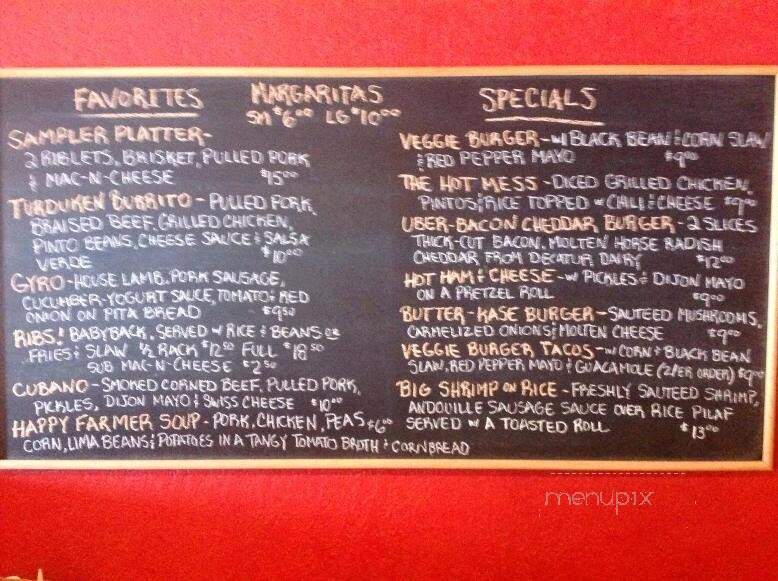 FAVORITES
MARGARITAS
SM $6⁰⁰ LG $10⁰⁰
SAMPLER PLATTER-
2 RIBLETS, BRISKET, PULLED PORK
& MAC-N-CHEESE $15⁰⁰
TURDUKEN BURRITO - PULLED PORK,
BRAISED BEEF, GRILLED CHICKEN,
PINTO BEANS, CHEESE SAUCE & SALSA
VERDE $10⁰⁰
GYRO - HOUSE LAMB, PORK SAUSAGE,
CUCUMBER-YOGURT SAUCE, TOMATO & RED
ONION ON PITA BREAD $9⁵⁰
RIBS! BABYBACK, SERVED W/ RICE & BEANS OR
FRIES & SLAW ½ RACK $12⁵⁰ FULL $18⁵⁰
SUB MAC-N-CHEESE $2⁵⁰
CUBANO - SMOKED CORNED BEEF, PULLED PORK,
PICKLES, DIJON MAYO & SWISS CHEESE $10⁰⁰
HAPPY FARMER SOUP - PORK, CHICKEN, PEAS, $6⁰⁰
CORN, LIMA BEANS & POTATOES IN A TANGY TOMATO BROTH & CORNBREAD
SPECIALS
VEGGIE BURGER - W/ BLACK BEAN & CORN SLAW
& RED PEPPER MAYO $9⁰⁰
THE HOT MESS - DICED GRILLED CHICKEN,
PINTOS & RICE TOPPED W CHILI & CHEESE $9⁰⁰
UBER-BACON CHEDDAR BURGER - 2 SLICES
THICK-CUT BACON, MOLTEN HORSE RADISH
CHEDDAR FROM DECATUR DAIRY $12⁰⁰
HOT HAM & CHEESE - W PICKLES & DIJON MAYO
ON A PRETZEL ROLL $9⁰⁰
BUTTER-KASE BURGER - SAUTEED MUSHROOMS,
CARMELIZED ONIONS & MOLTEN CHEESE $9⁰⁰
VEGGIE BURGER TACOS - W/ CORN & BLACK BEAN
SLAW, RED PEPPER MAYO & GUACAMOLE (2 PER ORDER) $9⁰⁰
BIG SHRIMP ON RICE - FRESHLY SAUTEED SHRIMP,
ANDOUILLE SAUSAGE SAUCE OVER RICE PILAF
SERVED W A TOASTED ROLL $13⁰⁰
menupix